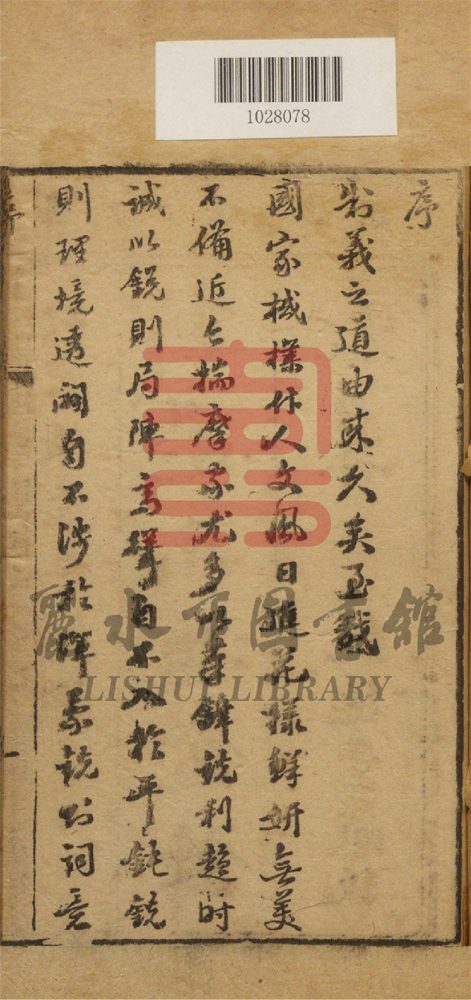 1028078
序
制義之道由來久矣至我
國家棫樸作人文風日進花樣鮮妍無美
不備近今揣摩家尤多以筆鋒銳利趨時
誠以銳則局陣高聳自不入於平鈍銳
則理境透闢自不涉於浮蒙銳則詞意
麗水市圖書館
LISHUI LIBRARY